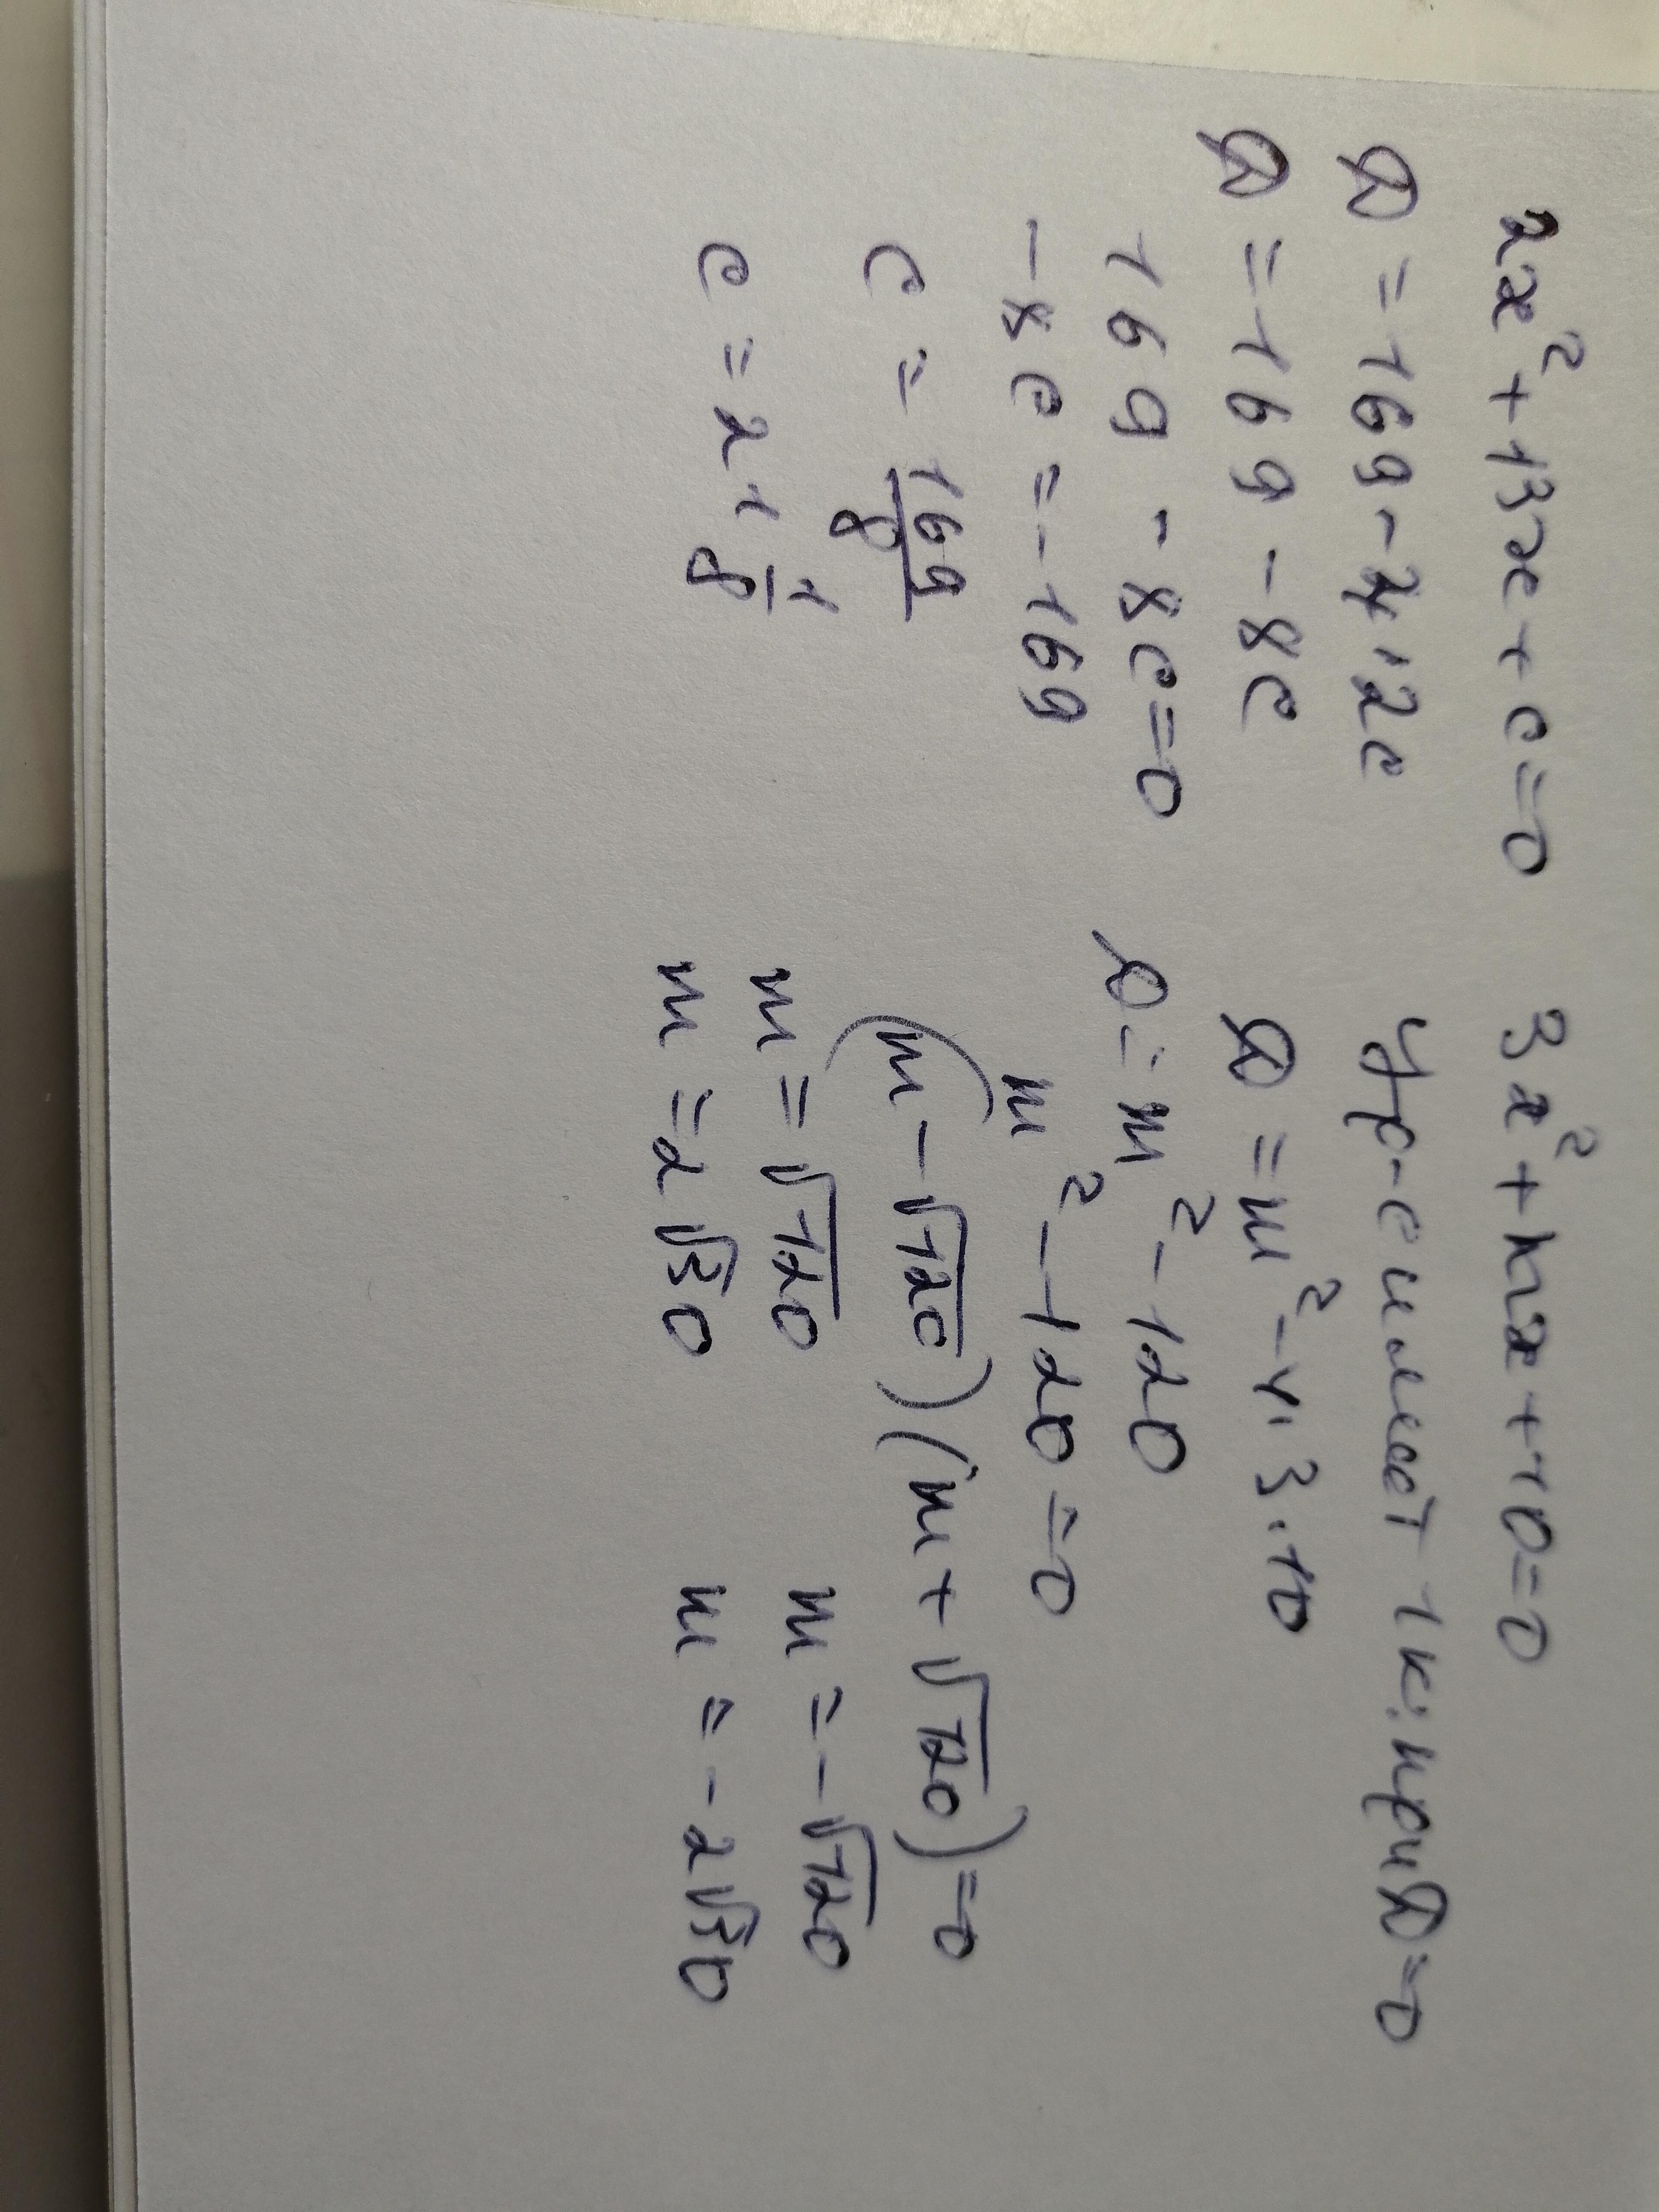 2x² + 13x + c = 0
D = 169 - 4·2c
D = 169 - 8c
169 - 8c = 0
-8c = -169
c = 169/8
c = 21 1/8
3x² + mx + 10 = 0
Ур-е имеет 1 к. при D = 0
D = m² - 4·3·10
D = m² - 120
m² - 120 = 0
(m - √120)(m + √120) = 0
m = √120 m = -√120
m = 2√30 m = -2√30